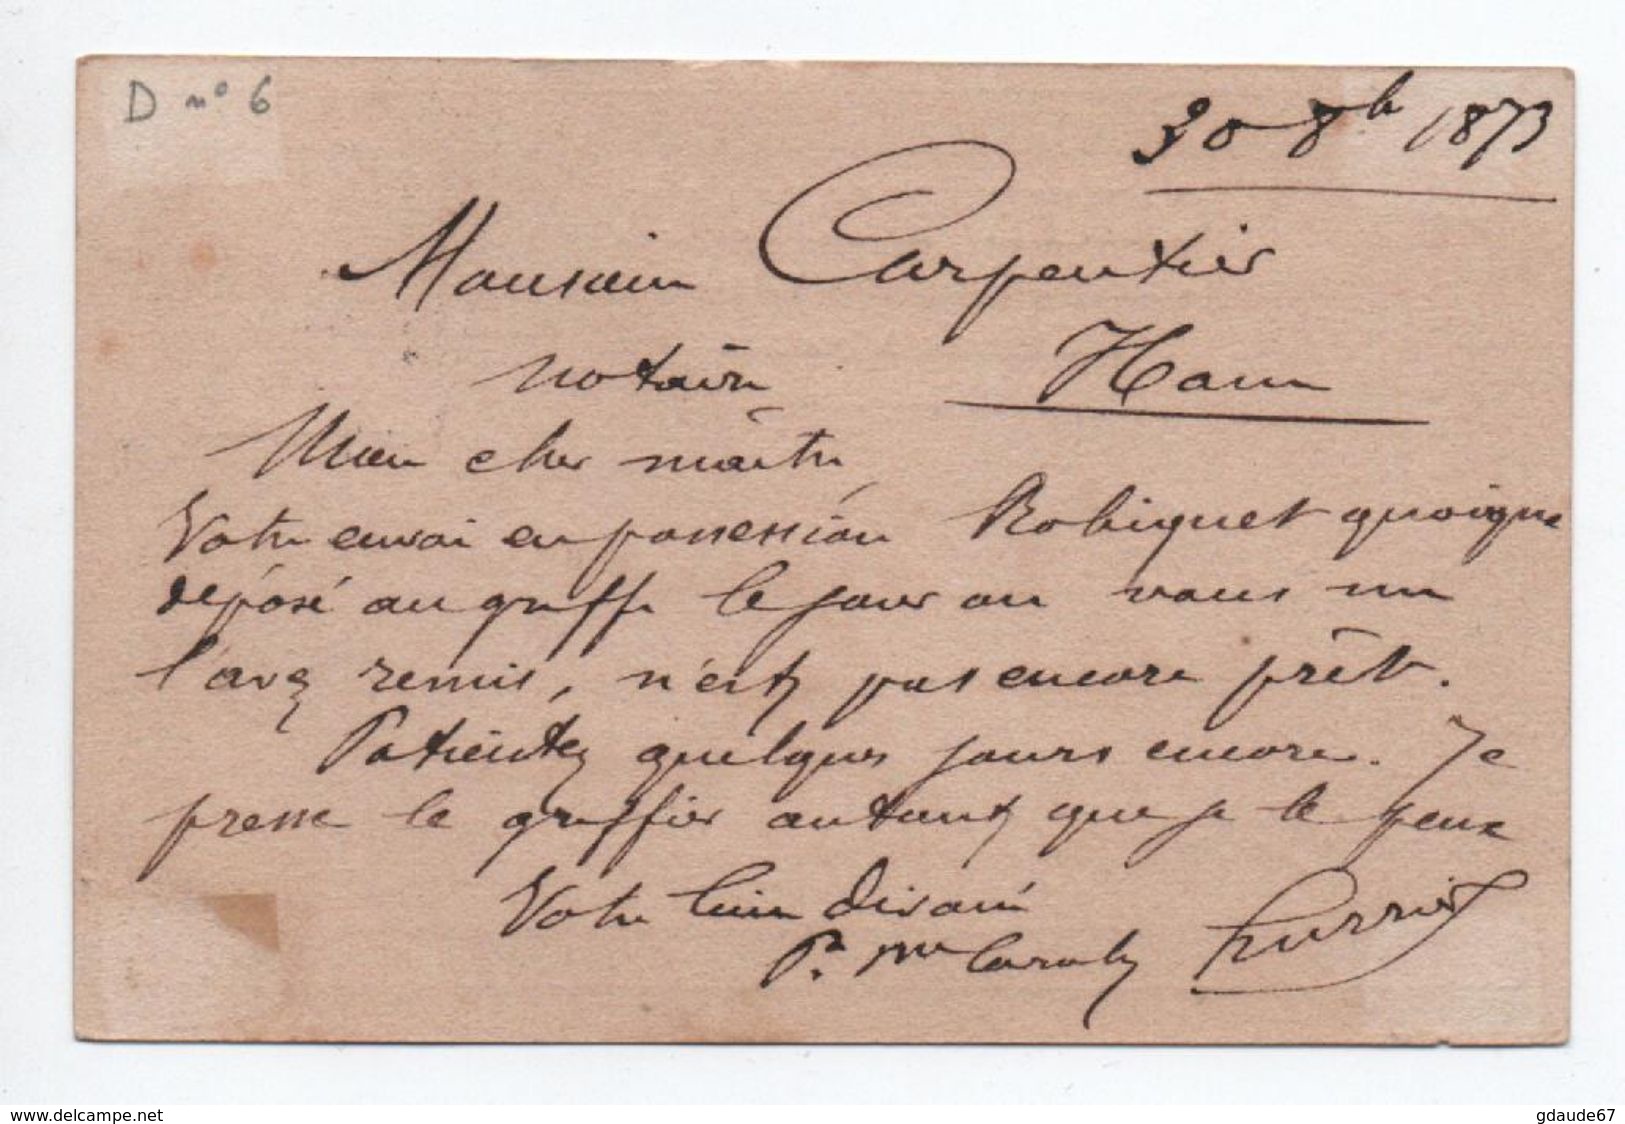 D n° 6
30 8b 1873
Monsieur Carpentier
notaire Ham
Mon cher maître
Votre envoi en possession Robiquet quoique
déposé au greffe le jour où vous me
l'avez remis, n'est pas encore prêt.
Patientez quelques jours encore. Je
presse le greffier autant que je le peux
Votre bien dévoué
Pr Me
www.delcampe.net
gdaude67